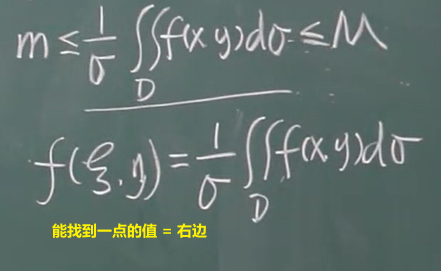 m ≤ 1/σ ∬f(x y)dσ ≤ M
D
f(ξ, η) = 1/σ ∬f(x y)dσ
D
能找到一点的值 = 右边